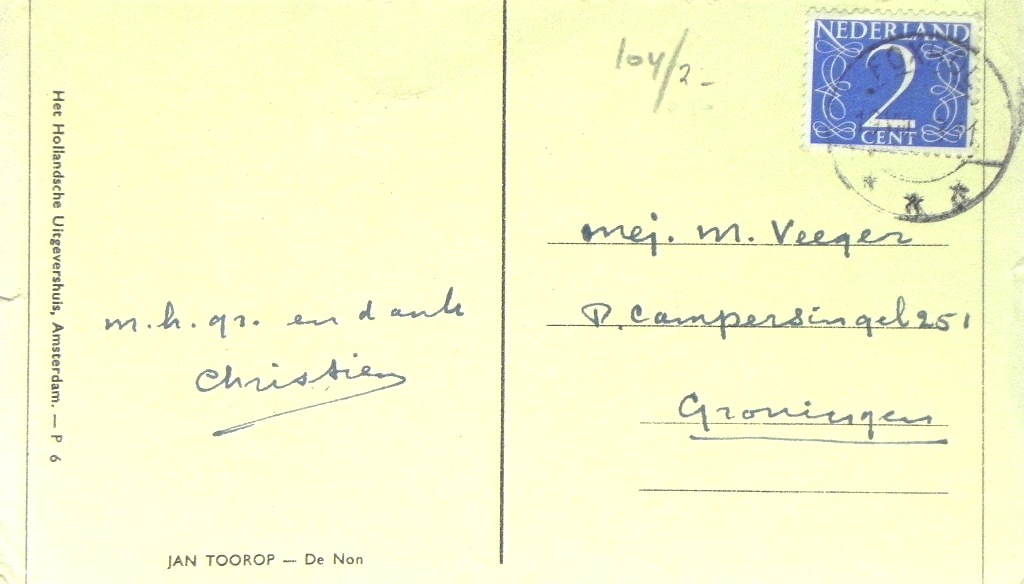 Het Hollandsche Uitgevershuis, Amsterdam. — P 6
m.h.gr. en dank
Christien
JAN TOOROP — De Non
104/2-
NEDERLAND
2
CENT
mej. M. Veeger
P. Campersingel 251
Groningen